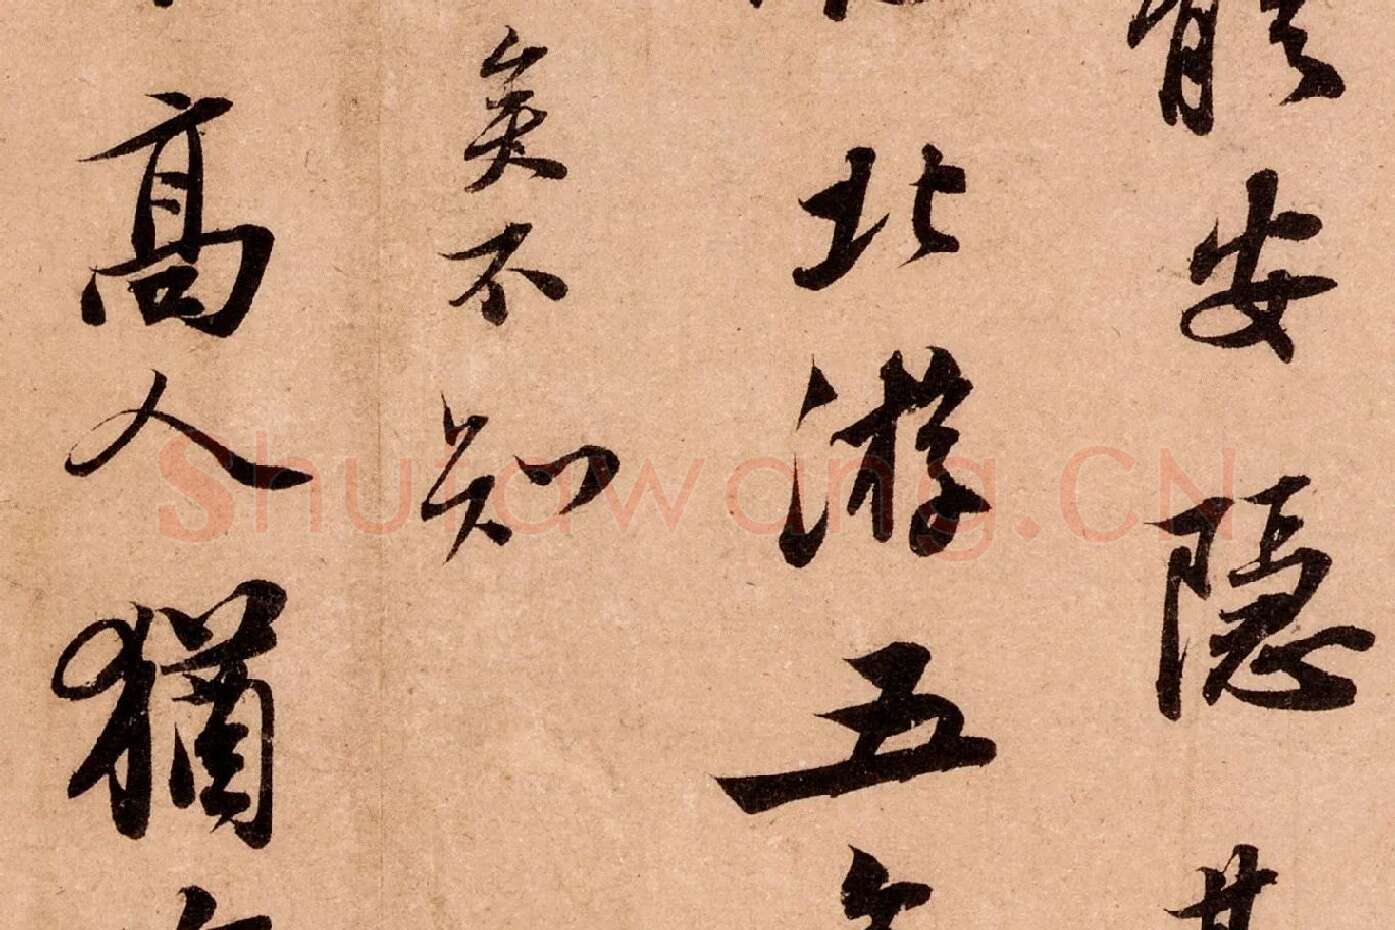 體安隱
北游五年
矣不知
高人猶
Shufawang.CN